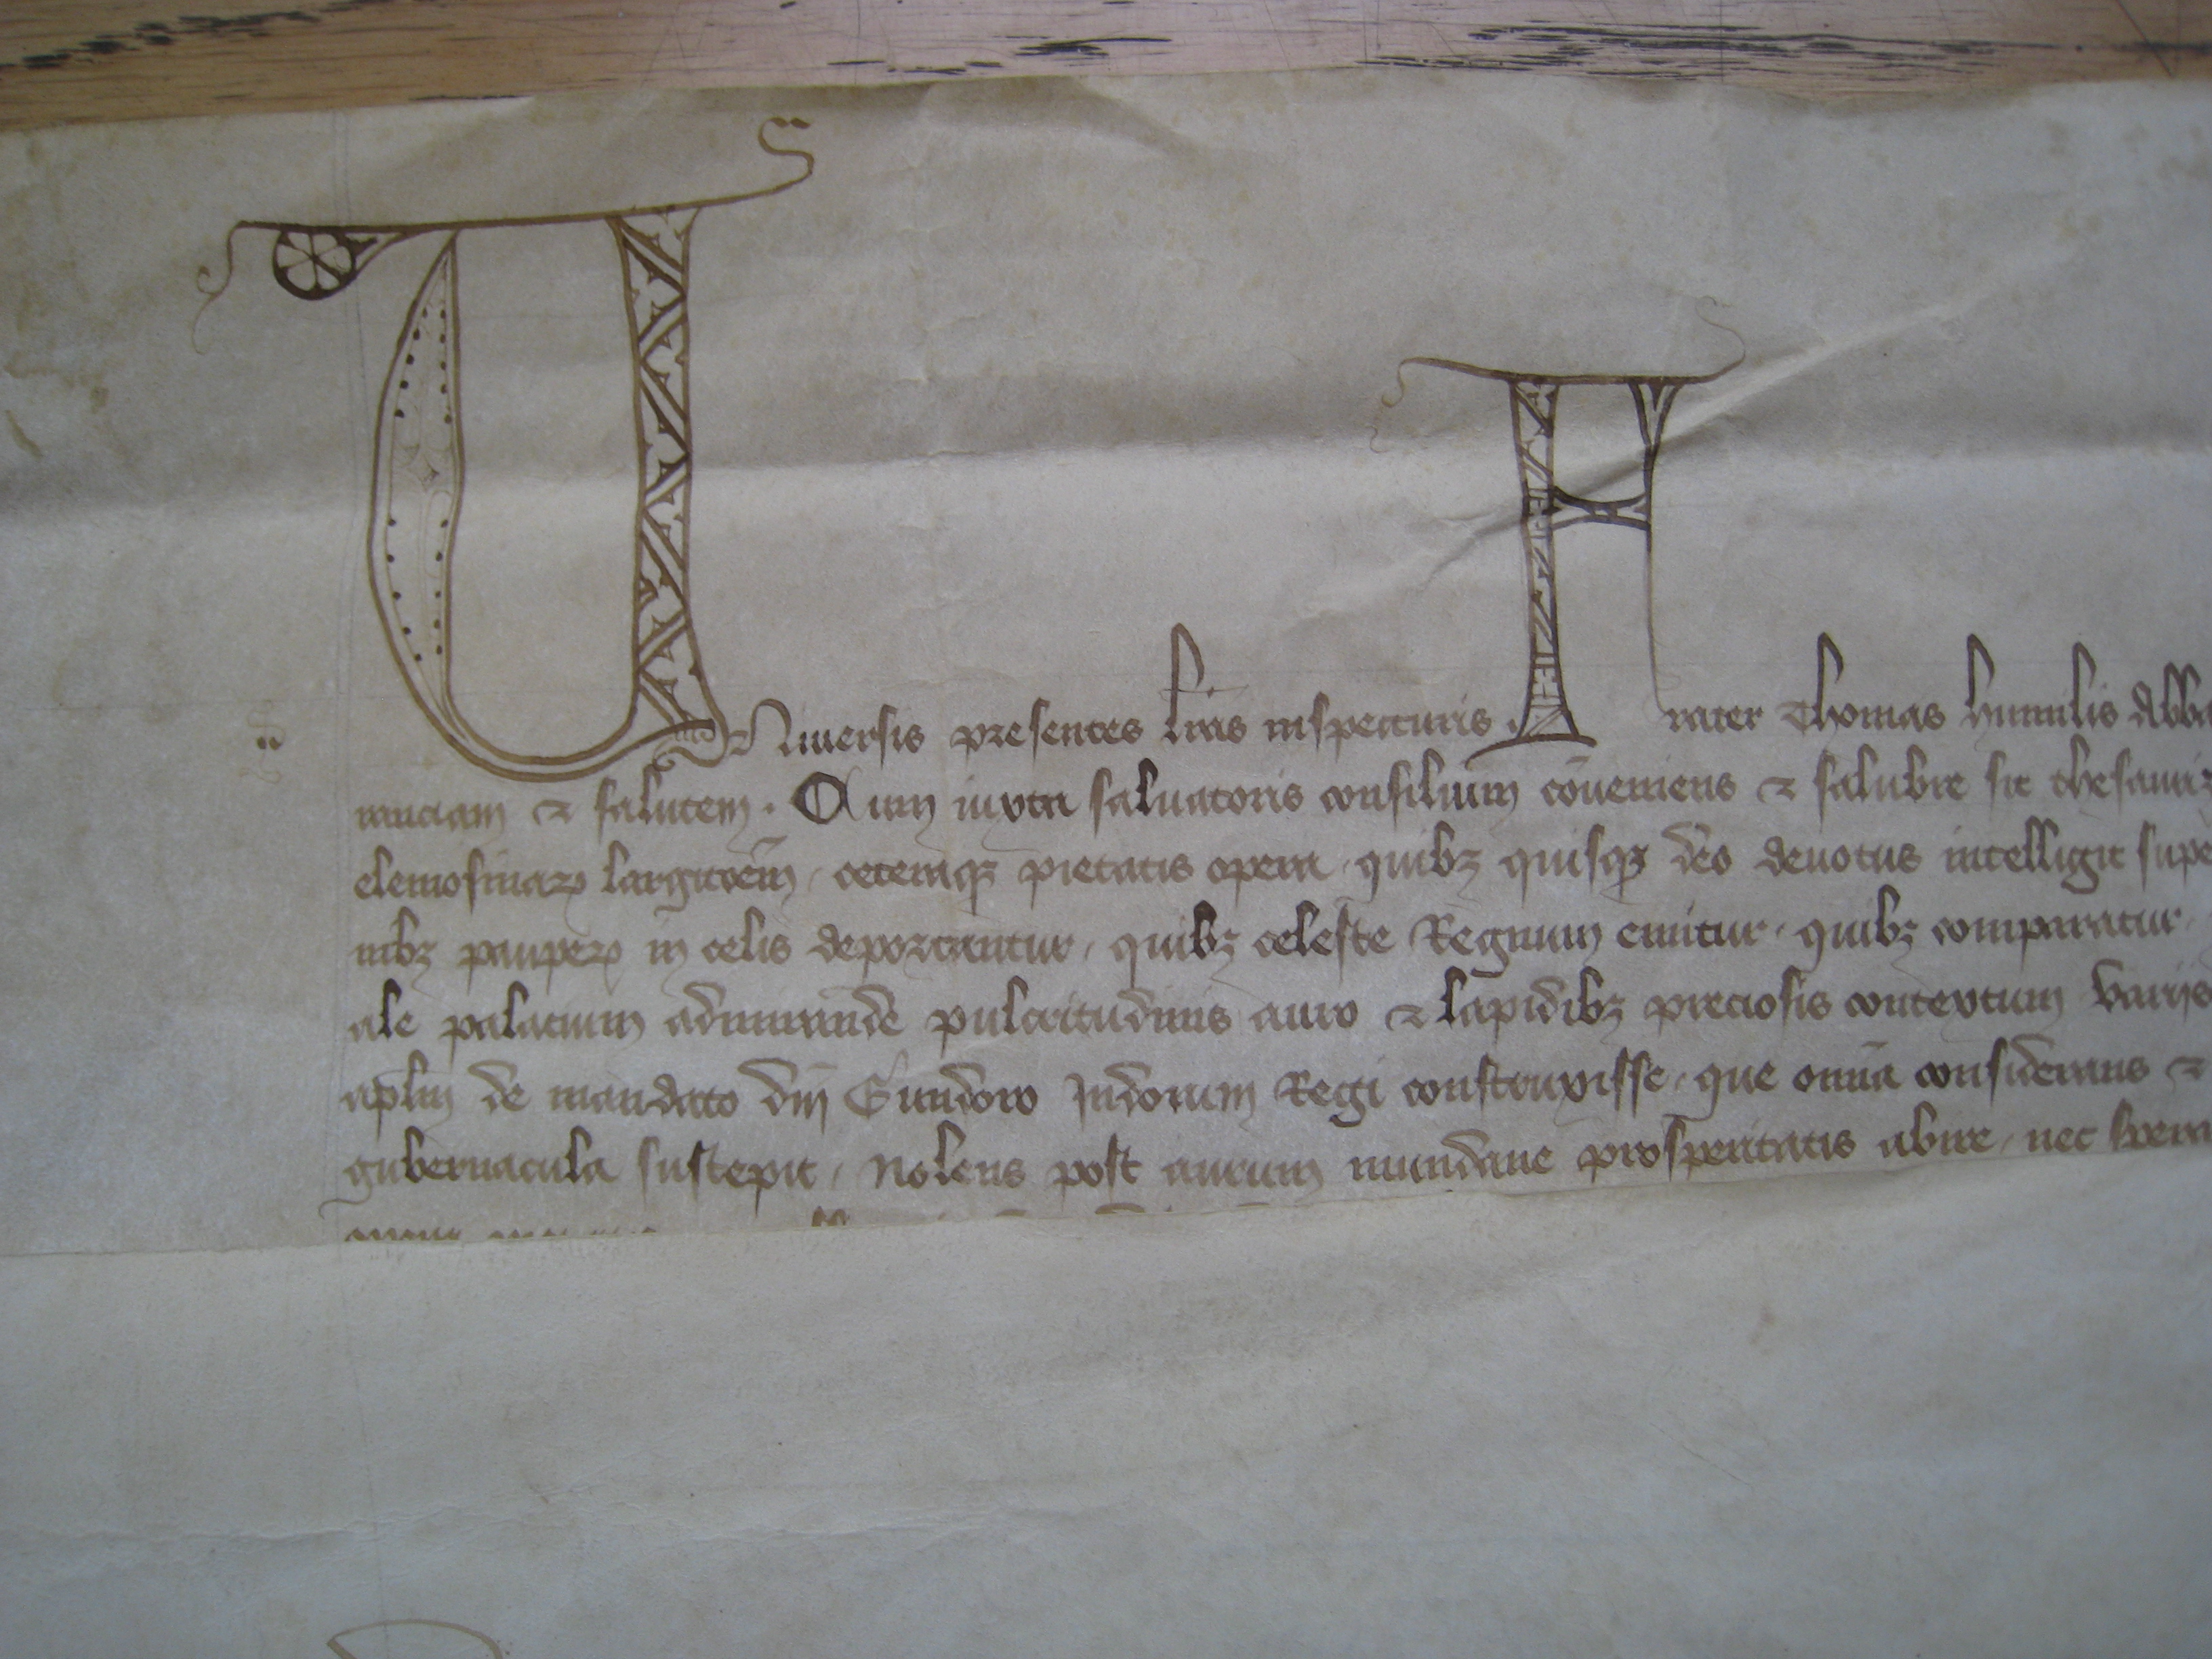 UNiuersis presentes lras inspecturis . Frater Thomas humilis Abba
ranciam ⁊ salutem . Cum iuxta saluatoris consilium cōueniens ⁊ salubre sit thesauriz
elemosinaꝝ largitōēm / ceteraqꝫ pietatis opera / quibꝫ quisqꝫ deo deuotus intelligit supe
nibꝫ pauꝑꝝ in celis deportantur / quibꝫ celeste Regnum emitur / quibꝫ comparatur /
ale palacium admirande pulcritudinis auro ⁊ lapidibꝫ preciosis contextum varijs
aplm de mandato dnj Gundoro Jndorum Regi construxisse / que omīa considerans ⁊
gubernacula suscepit / Nolens post aurum mundane prosperitatis abire / nec